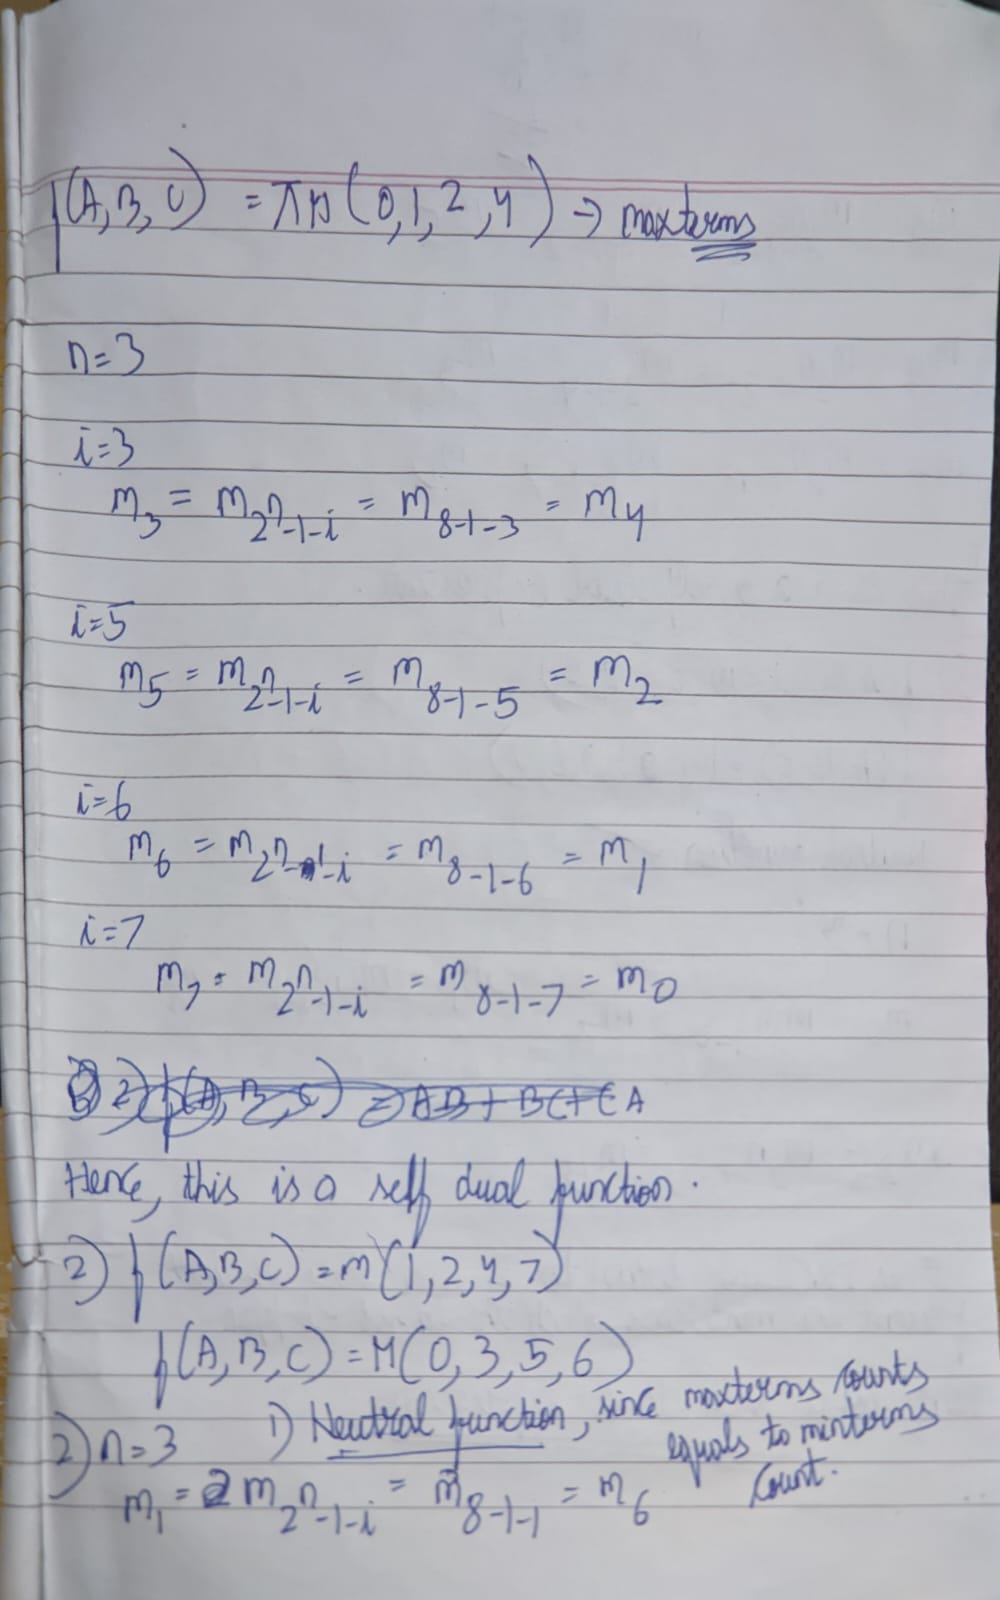 f(A,B,C) = πM(0,1,2,4) → maxterms
n=3
i=3
m₃ = m₂ⁿ₋₁₋ᵢ = m₈₋₁₋₃ = m₄
i=5
m₅ = m₂ⁿ₋₁₋ᵢ = m₈₋₁₋₅ = m₂
i=6
m₆ = m₂ⁿ₋₁₋ᵢ = m₈₋₁₋₆ = m₁
i=7
m₇ = m₂ⁿ₋₁₋ᵢ = m₈₋₁₋₇ = m₀
2) f(A,B,C) = AB + BC + CA
Hence, this is a self dual function.
2) f(A,B,C) = m(1,2,4,7)
f(A,B,C) = M(0,3,5,6)
1) Neutral function, since maxterms counts
equals to minterms
count.
2) n=3
m₁ = m₂ⁿ₋₁₋ᵢ = m₈₋₁₋₁ = m₆